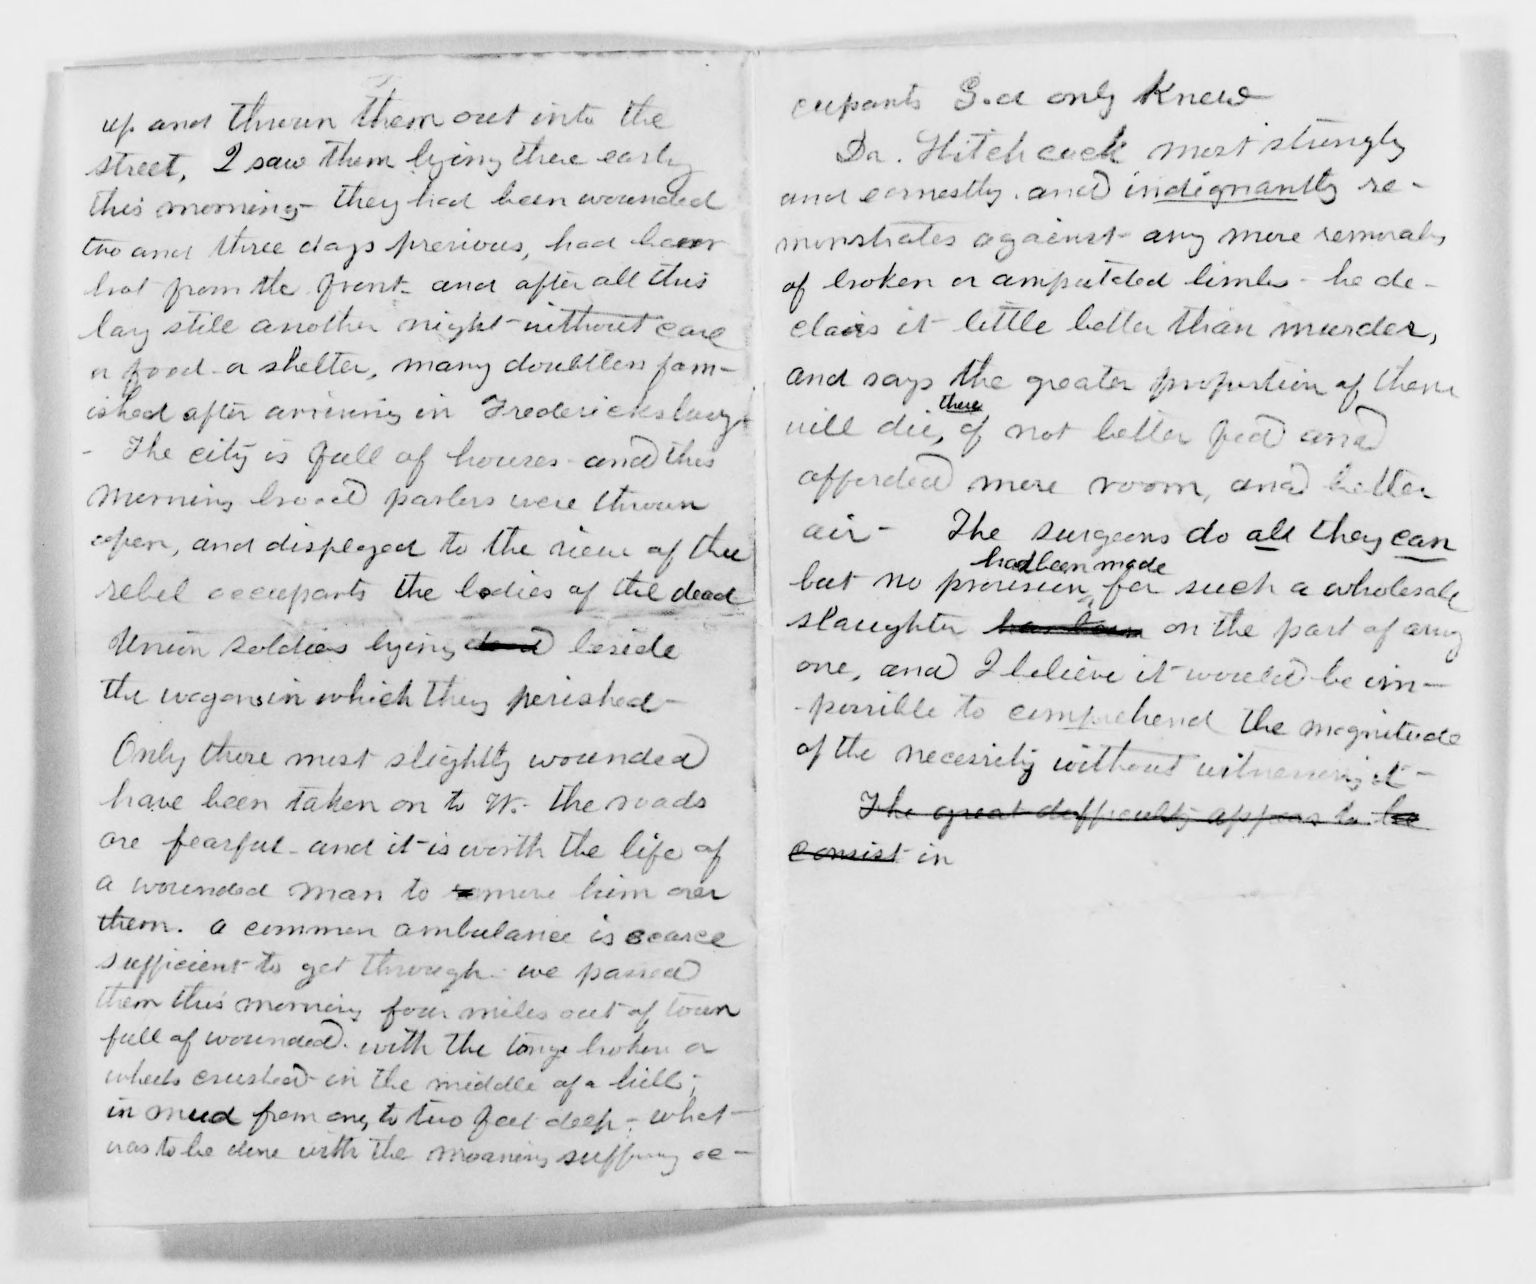 up and thrown them out into the
street, I saw them lying there early
this morning - they had been wounded
two and three days previous, had been
brot from the front - and after all this
lay still another night - without care
or food - or shelter, many doubtless fam-
ished after arriving in Fredericksburg -
- The city is full of houses - and this
morning broad parlors were thrown
open, and displayed to the view of the
rebel occupants the bodies of the dead
Union soldiers lying dead beside
the wagons in which they perished -
Only those most slightly wounded
have been taken on to W. - the roads
are fearful - and it is worth the life of
a wounded man to move him over
them. A common ambulance is scarce
sufficient to get through - we passed
them this morning four miles out of town
full of wounded. with the tonge broken or
wheels crushed - in the middle of a hill;
in mud from one, to two feet deep -; what -
was to be done with the moaning suffring oc -
cupants God only knew
Dr. Hitchcock most strongly
and earnestly. and indignantly re -
monstrates against any more removals
of broken or amputated limbs - he de -
clairs it little better than murder,
and says the greater proportion of them
will die, there if not better fed and
afforded more room, and better
air - The surgeons do all they can
had been made
but no provision for such a wholesale
slaughter has been on the part of any
one, and I believe it would be im -
- possible to comprehend the magnitude
of the necessity without witnessing it -
The great difficulty appears to be
consist in